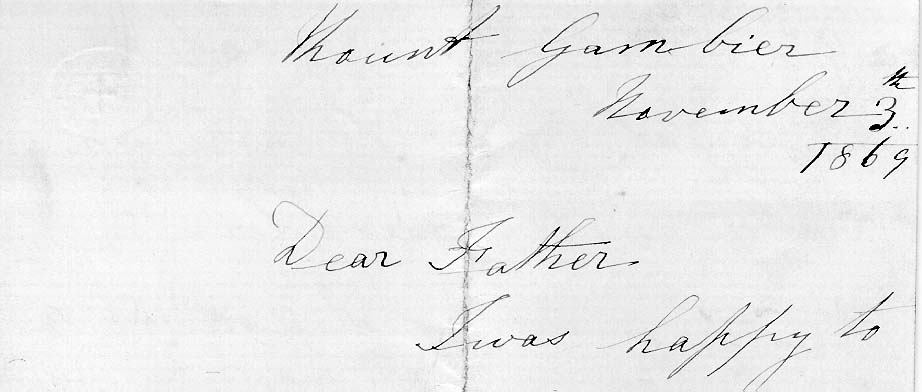 Mount Gambier
November 3th
1869
Dear Father
I was happy to